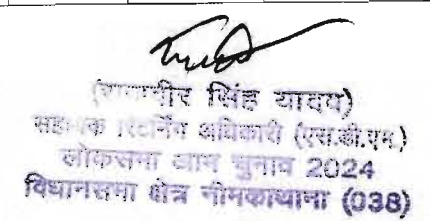 सिंह यादव)
सहायक रिटर्निंग अधिकारी (एस.डी.एम.)
लोकसभा आम चुनाव 2024
विधानसभा क्षेत्र नीमकाथाना (038)